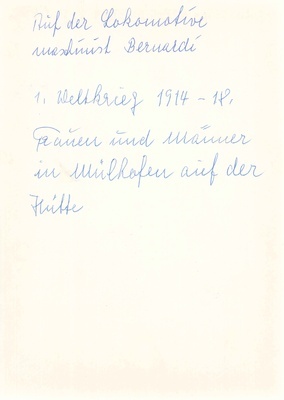 Auf der Lokomotive
maschinist Bernardi
1. Weltkrieg 1914 - 18.
Frauen und Männer
in Mülhofen auf der
Hütte